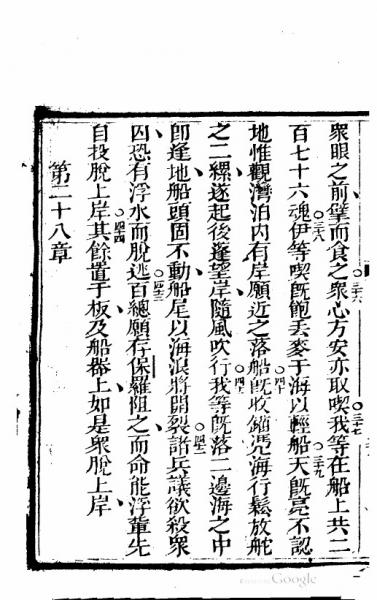 衆眼之前擘而食之衆心方安亦取喫我等在船上共二
百七十六魂伊等喫既飽丟麥于海以輕船天既亮不認
地惟觀灣泊內有岸願近之落船既收錨凴海行鬆放舵
之二縲遂起後篷望岸隨風吹行我等既落二邊海之中
卽逢地船頭固不動船尾以海浪將開裂諸兵議欲殺衆
囚恐有浮水而脫逃百總願存保羅阻之而命能浮輩先
自投脫上岸其餘置于板及船器上如是衆脫上岸
第二十八章
Google